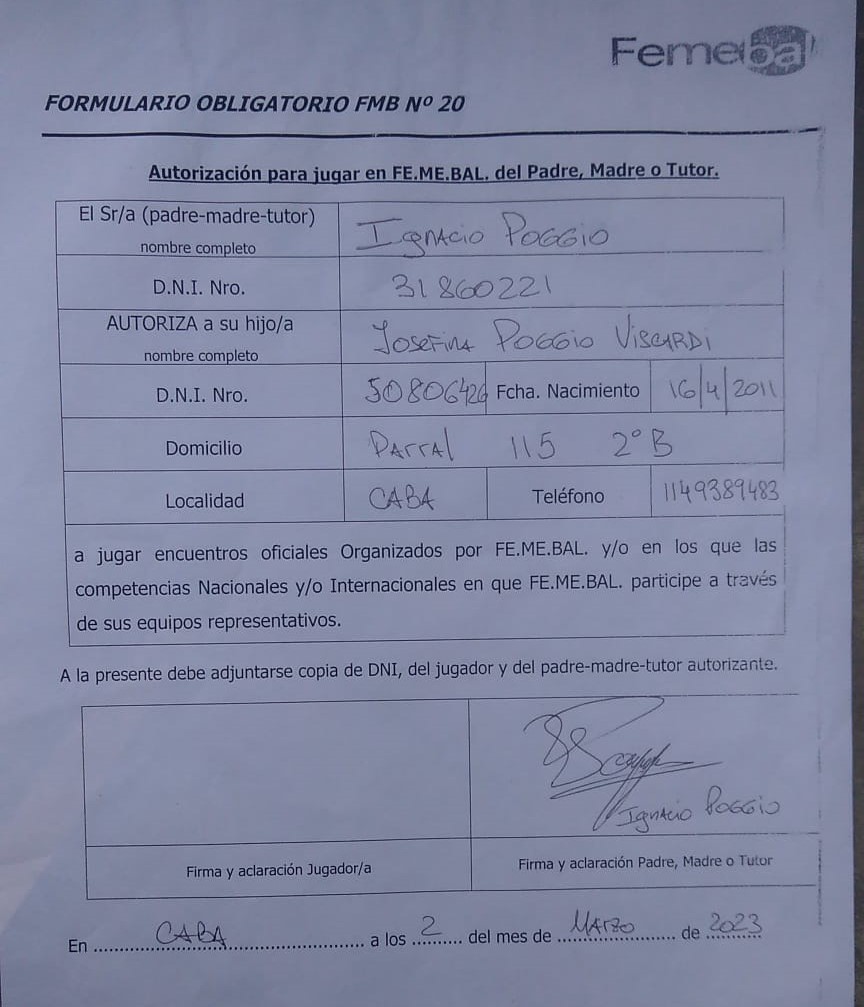 Femeba
FORMULARIO OBLIGATORIO FMB Nº 20
Autorización para jugar en FE.ME.BAL. del Padre, Madre o Tutor.
El Sr/a (padre-madre-tutor)
nombre completo
Ignacio Poggio
D.N.I. Nro. 31860221
AUTORIZA a su hijo/a
nombre completo
Josefina Poggio Viscardi
D.N.I. Nro. 50806426 Fcha. Nacimiento 16/4/2011
Domicilio Parral 115 2° B
Localidad CABA Teléfono 1149389483
a jugar encuentros oficiales Organizados por FE.ME.BAL. y/o en los que las
competencias Nacionales y/o Internacionales en que FE.ME.BAL. participe a través
de sus equipos representativos.
A la presente debe adjuntarse copia de DNI, del jugador y del padre-madre-tutor autorizante.
Ignacio Poggio
Firma y aclaración Jugador/a Firma y aclaración Padre, Madre o Tutor
En CABA a los 2 del mes de Marzo de 2023